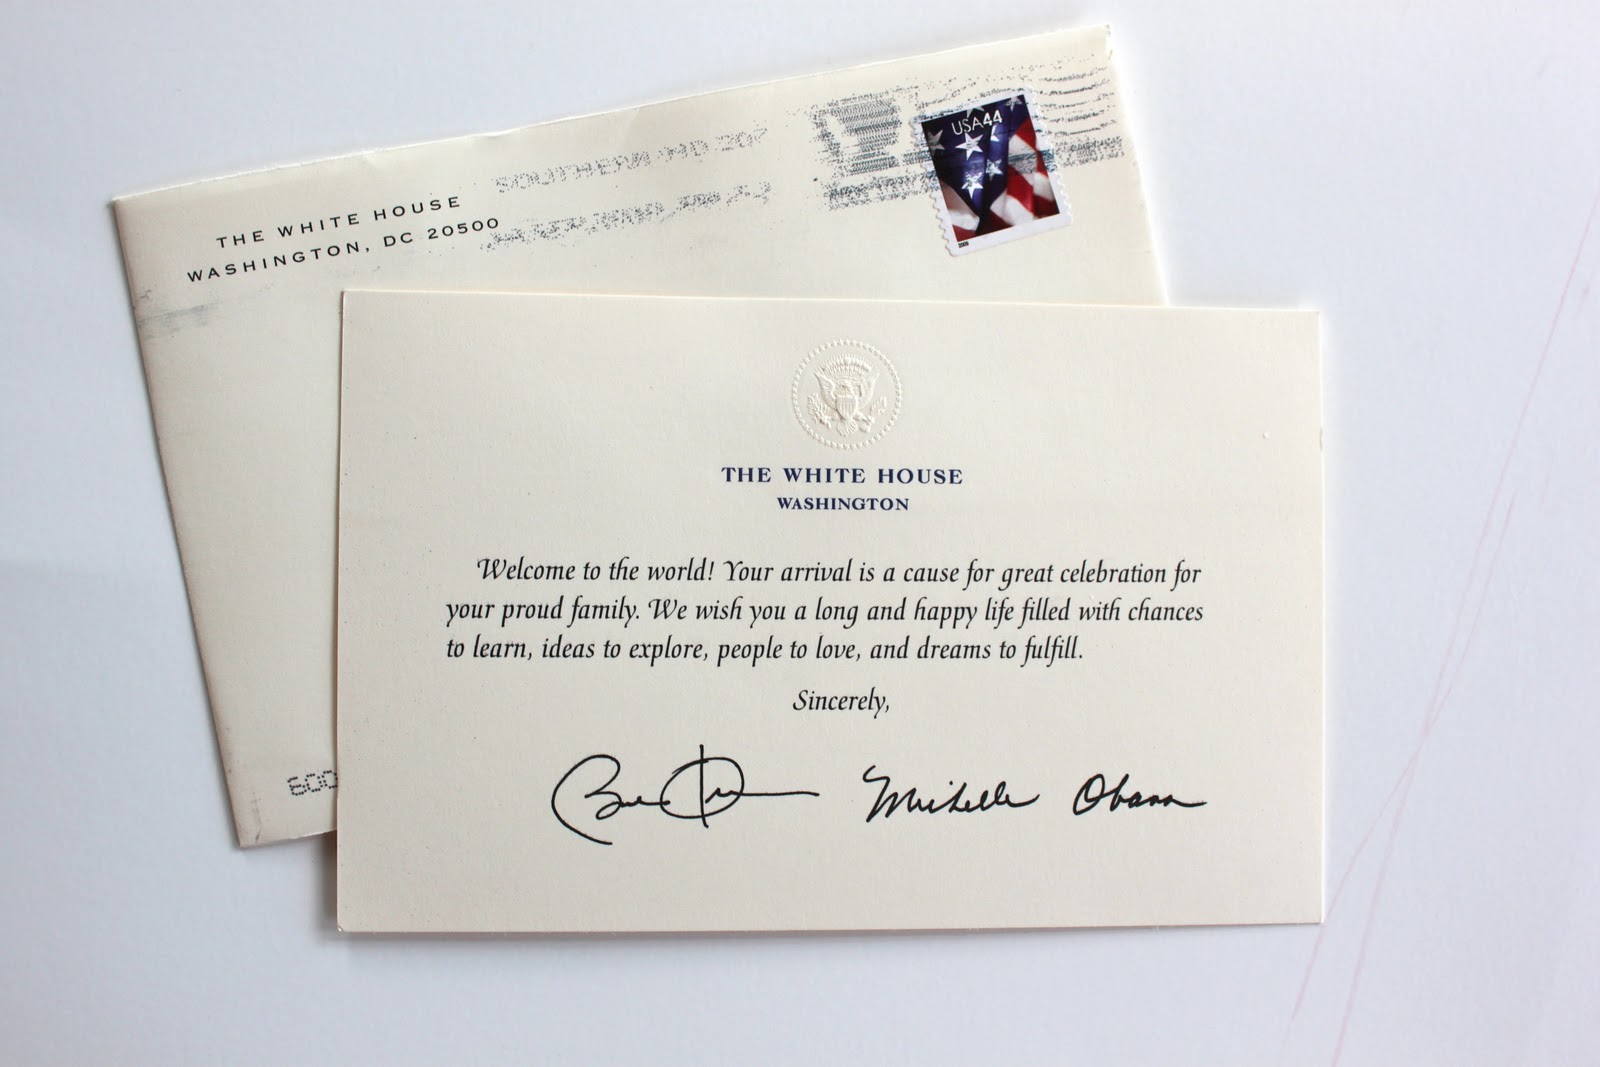 SOUTHERN MD 207
THE WHITE HOUSE
WASHINGTON, DC 20500
USA 44
2009
THE WHITE HOUSE
WASHINGTON
Welcome to the world! Your arrival is a cause for great celebration for
your proud family. We wish you a long and happy life filled with chances
to learn, ideas to explore, people to love, and dreams to fulfill.
Sincerely,
Michelle Obama